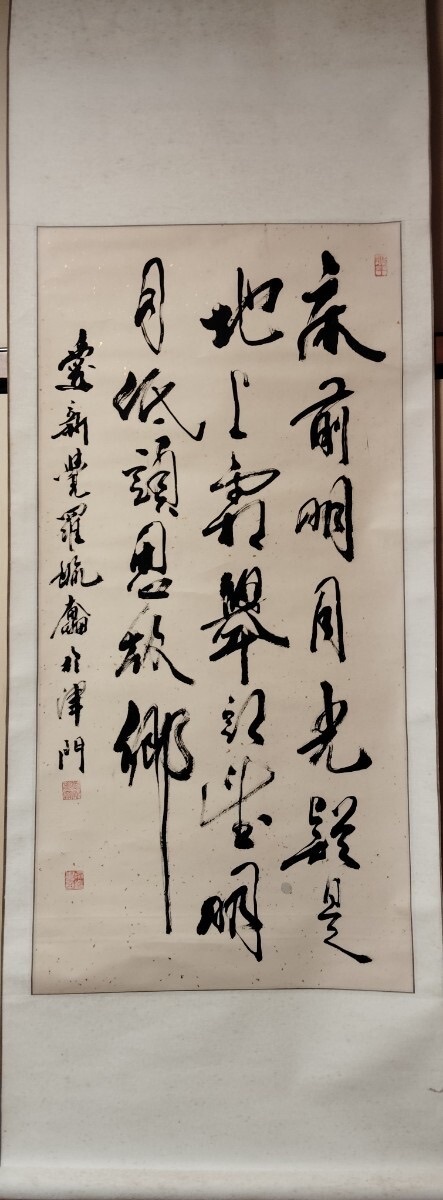 床前明月光疑是
地上霜舉頭望明
月低頭思故鄉
愛新覺羅毓奮於津門